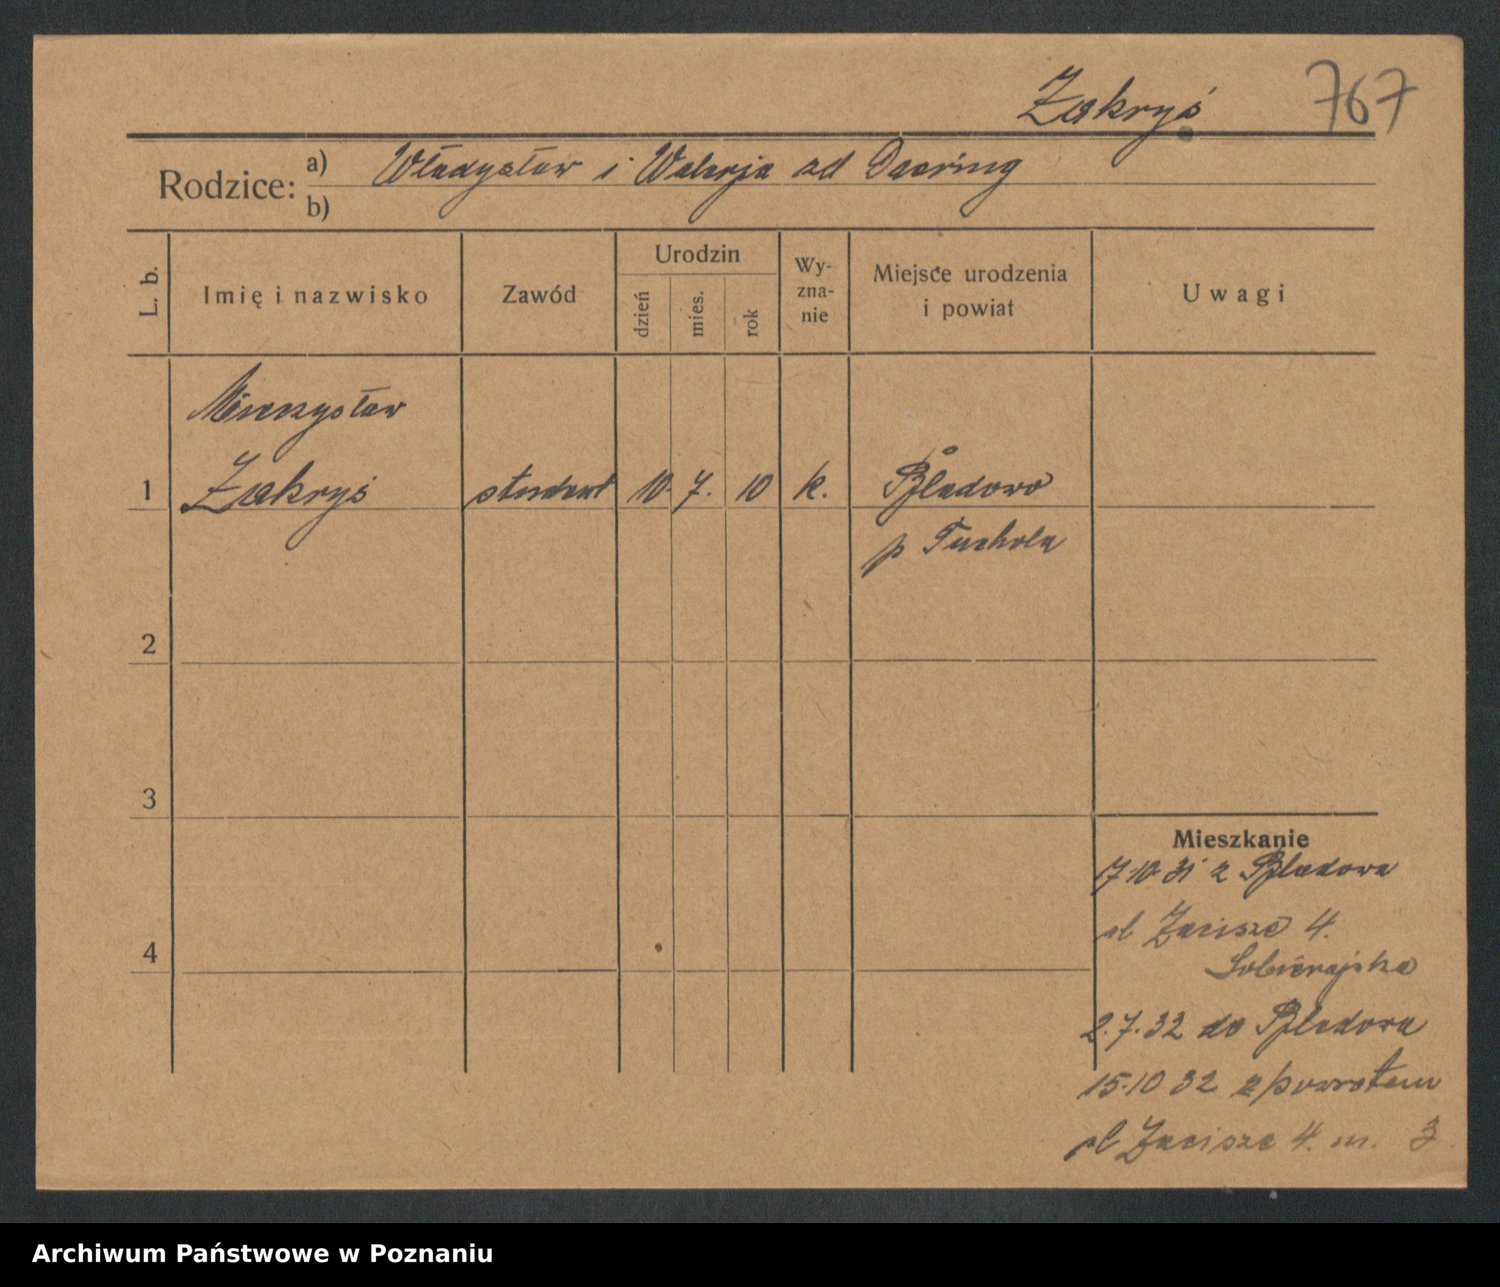 Zakryś 767
Rodzice: a) Władysław i Walerja od Daering
b)
L. b. Imię i nazwisko Zawód Urodzin dzień mies. rok Wy-zna-nie Miejsce urodzenia i powiat Uwagi
Mieczysław
1 Zakryś student 10. 7. 10 k. Bladowo
p Tuchola
2
3
Mieszkanie
17 10 31 z Bladowa
pl Zacisze 4.
4
Sobierajska
2.7.32 do Bladowa
15.10 32 z powrotem
pl Zacisze 4. m. 3
Archiwum Państwowe w Poznaniu